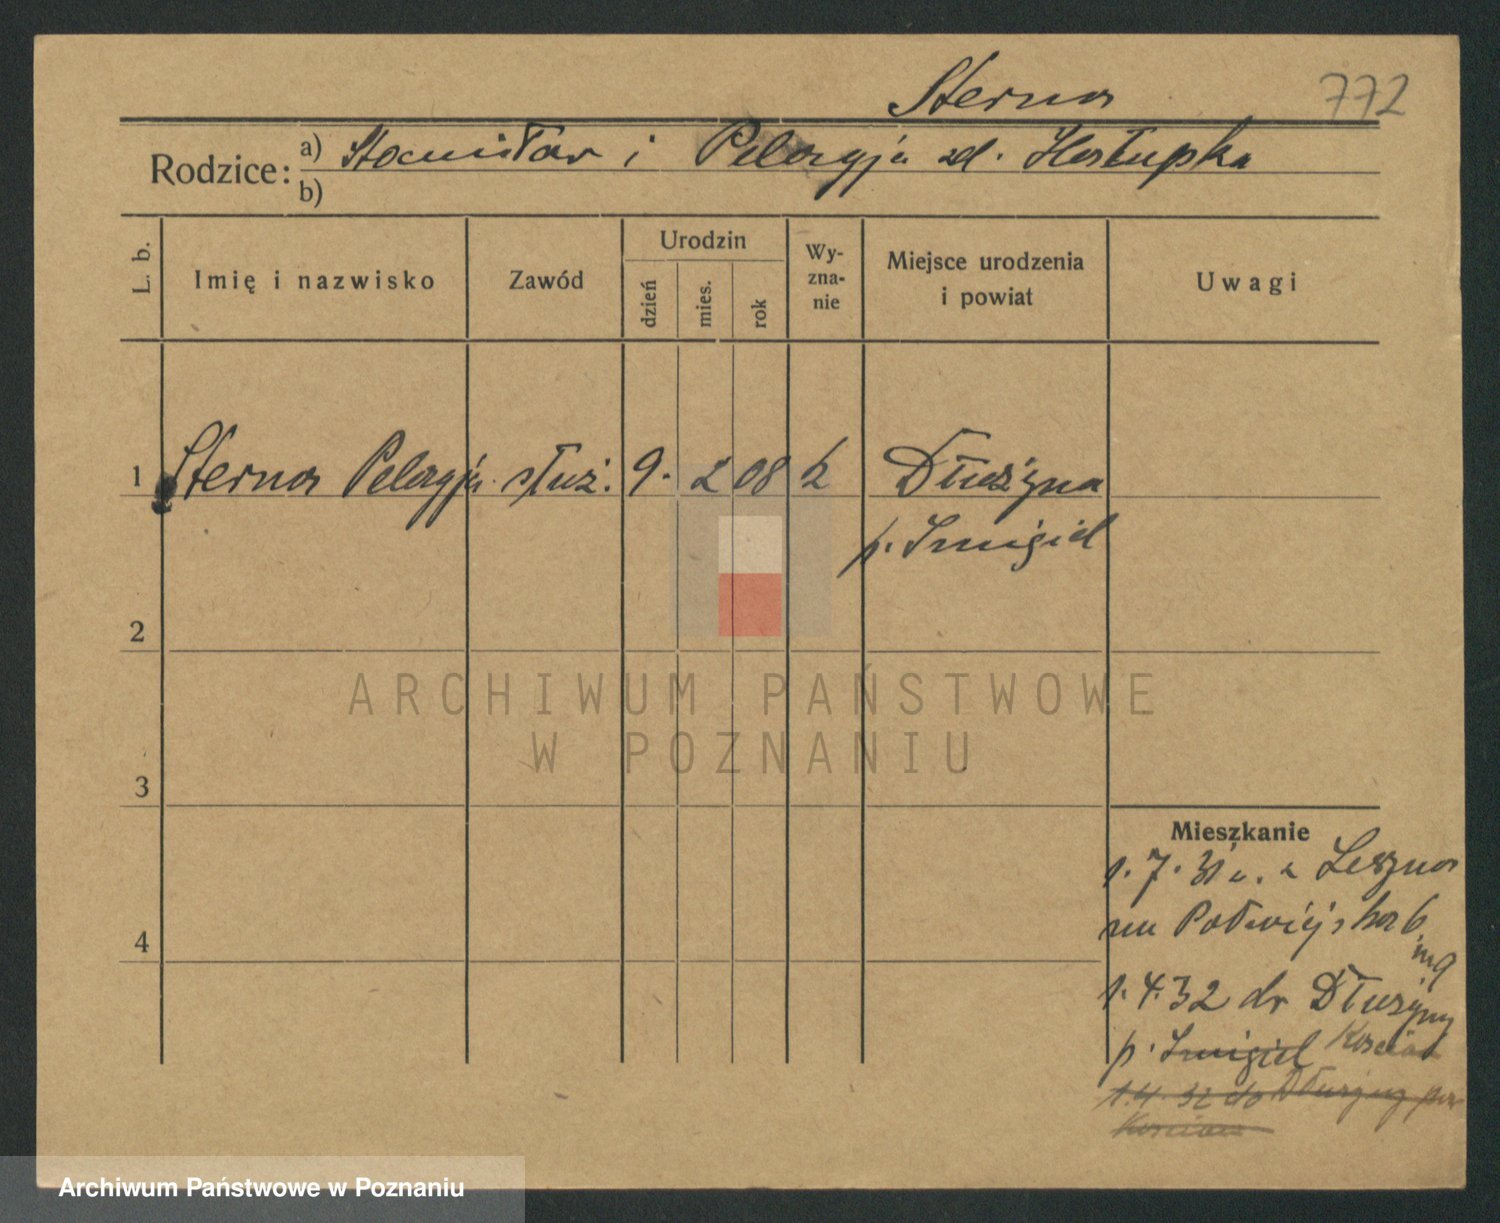 Sterna
772
Rodzice: a) Stanisław i Pelagja zd. Hosłupska
b)
L. b.
Imię i nazwisko
Zawód
Urodzin
dzień
mies.
rok
Wy-
zna-
nie
Miejsce urodzenia
i powiat
Uwagi
1 Sterna Pelagja służ. 9. 2 08 k Dłużyna
p. Śmigiel
2
ARCHIWUM PAŃSTWOWE
W POZNANIU
3
Mieszkanie
1. 7. 31 z Leszna
na 6
m 9
4
1. 4. 32 do Dłużyny
p. Śmigiel Kościan
1.4. 32 do Dłużyny pow
Kościan
Archiwum Państwowe w Poznaniu